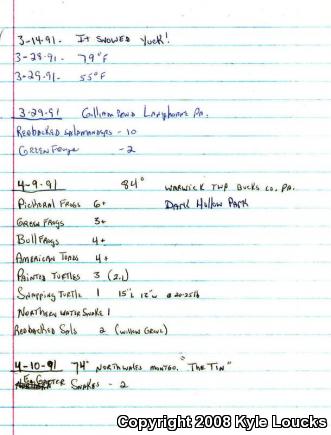 3-14-91- It snowed Yuck!
3-28-91- 79°F
3-29-91- 55°F
3-29-91 Langhorne Pa.
Redbacked Salamanders - 10
Green Frogs - 2
4-9-91 84° Warwick Twp Bucks Co. Pa.
Pickeral Frogs 6+ Dark Hollow Park
Green Frogs 3+
Bull Frogs 4+
American Toads 4+
Painted Turtles 3 (2.1)
Snapping Turtle 1 15"L 12"W @ 20-25lb
Northern Water Snake 1
Redbacked Sals 2 (Willow Grove)
4-10-91 74° North Wales Montgo. "The Tin"
Garter Snakes - 2
Copyright 2008 Kyle Loucks